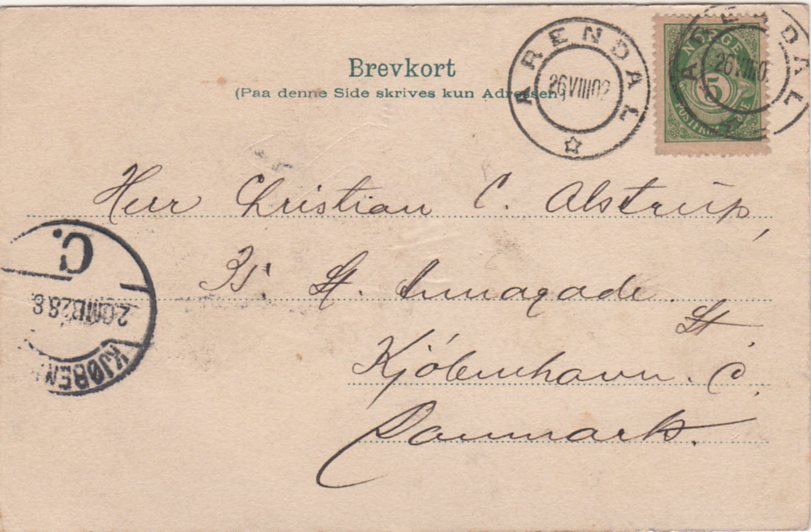 Brevkort
(Paa denne Side skrives kun Adressen)
ARENDAL
26 VIII 02
NORGE
5
POSTFRIM
ARENDAL
26 VIII 02
Herr Christian C. Alstrup,
35 St. Annagade. St
Kjöbenhavn. C.
Danmark.
C.
KJØBEN